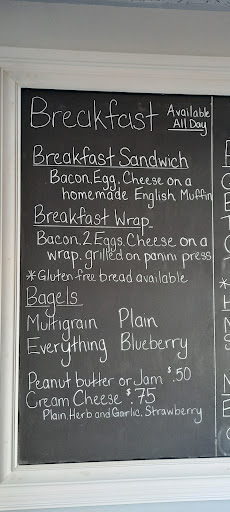 Breakfast Available
All Day
Breakfast Sandwich
Bacon, Egg, Cheese on a
homemade English Muffin
Breakfast Wrap
Bacon, 2 Eggs, Cheese on a
wrap, grilled on panini press
*Gluten free bread available
Bagels
Multigrain Plain
Everything Blueberry
Peanut butter or Jam $.50
Cream Cheese $.75
Plain, Herb and Garlic, Strawberry